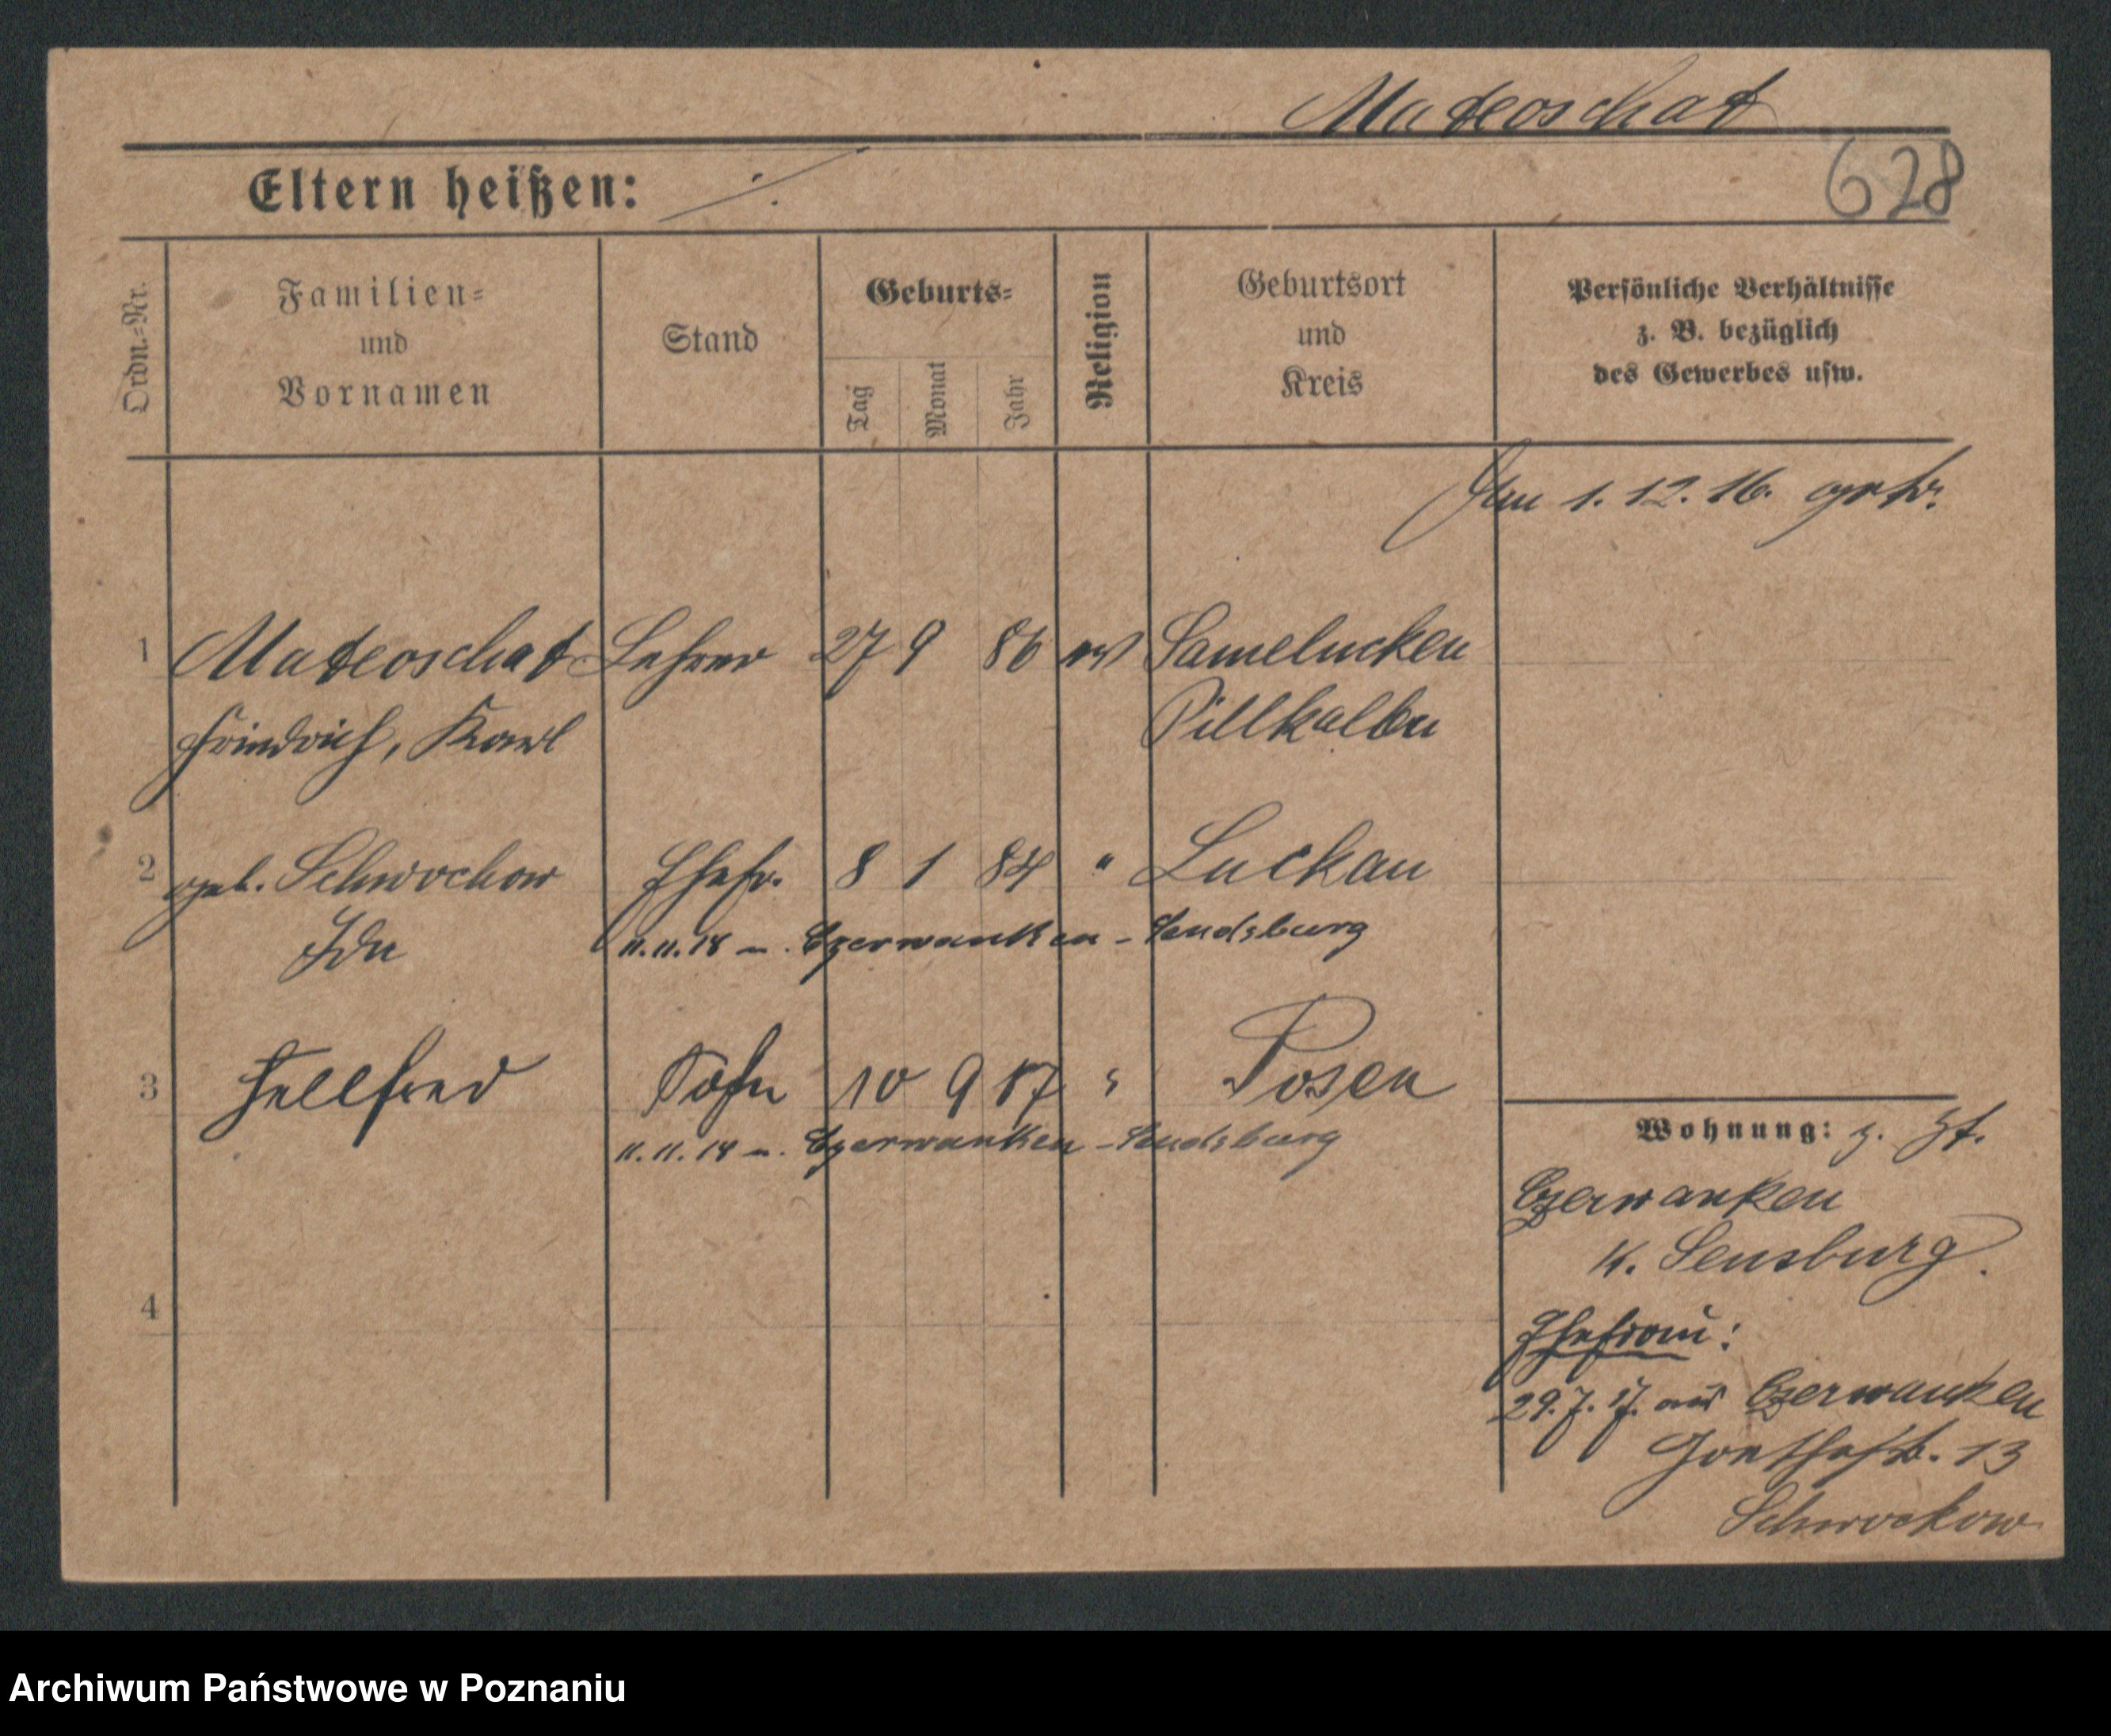 Mateoschat
Eltern heißen: ⁒
628
Ordn.-Nr.
Familien-
und
Vornamen
Stand
Geburts-
Tag
Monat
Jahr
Religion
Geburtsort
und
Kreis
Persönliche Verhältnisse
z. B. bezüglich
des Gewerbes usw.
1. 12. 16. getr.
1 Mateoschat Lehrer 27 9 86 ev Samelucken
Friedrich, Karl Pillkallen
2 geb. Schwochow Ehefr. 8 1 84 " Luckau
Ida 11.11.18 n. Czerwanken - Sendsburg
3 Hellfried Sohn 10 9 17 " Posen
11.11.18 n. Czerwanken - Sendsburg
4
Wohnung: z. Zt.
Czerwanken
K. Sensburg.
Ehefrau:
29.7.17. aus Czerwanken
Goethestr. 13
Schwochow
Archiwum Państwowe w Poznaniu